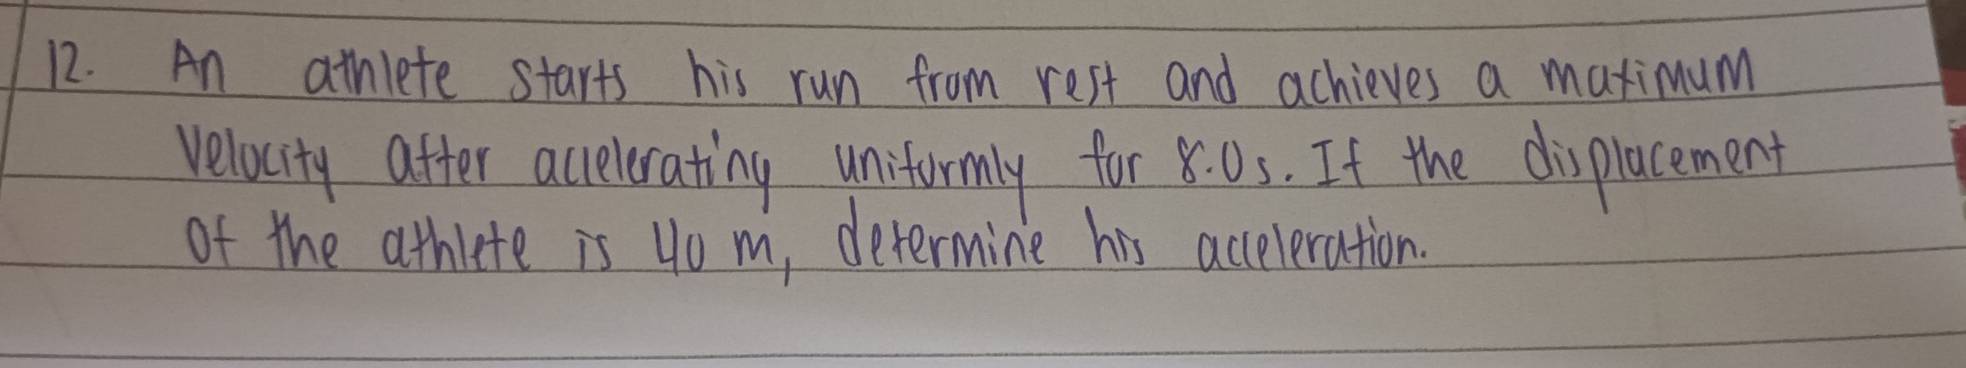 12. An athlete starts his run from rest and achieves a maximum
velocity after accelerating uniformly for 8.0s. If the displacement
of the athlete is 40 m, determine his acceleration.